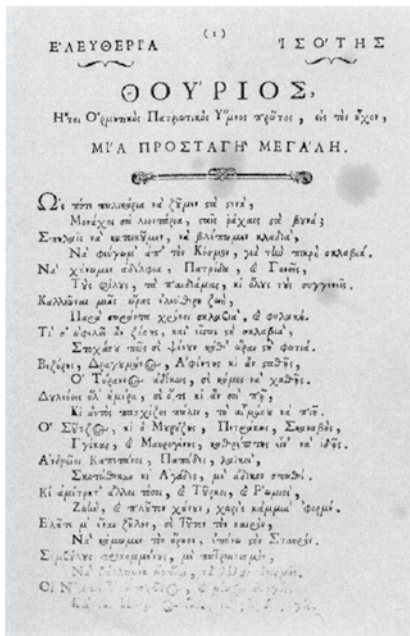 (1)
Ε᾿ΛΕΥΘΕΡΙ´Α ἸΣΟΤΗΣ
ΘΟΥ´ΡΙΟΣ,
Η῎τοι Ο῾ρμητικὸς Πατριωτικὸς Υ῞μνος πρῶτος, εἰς τὸν ἦχον,
ΜΙ´Α ΠΡΟΣΤΑΓΗ` ΜΕΓΑ´ΛΗ.
Ω῾ς πότε παλικάρια νὰ ζῦμεν ςὰ ςενὰ,
Μονάχοι σὰ λιοντάρια, ςαῖς ῥάχαις ςὰ βυνά;
Σπηλαῖς νὰ κατοικῦμεν, νὰ βλέπωμεν κλαδιὰ,
Νὰ φεύγωμ' ἀπ' τὸν Κόσμον, γιὰ τὴν πικρὴ σκλαβιά.
Νὰ χάνωμεν ἀδέλφια, Πατρίδα, & Γονεῖς,
Τὺς φίλυς, τὰ παιδιάμας, κι ὅλυς τὺς συγγενεῖς.
Καλλιῶναι μιᾶς ὥρας ἐλεύθερη ζωὴ,
Παρὰ σαράντα χρόνοι σκλαβιὰ, & φυλακή.
Τί σ' ὠφελᾶ ἂν ζήσης, καὶ εἶσαι ςὴ σκλαβιὰ,
Στοχάσυ πῶς σὲ ψένυν καθ' ὥραν ςὴ φωτιά.
Βεζύρης, Δραγυμάνος, Α᾿φέντης κι ἂν ςαθῆς,
Ο῾ Τύραννος ἀδίκως, σὲ κάμνει νὰ χαθῆς.
Δυλεύεις ὅλ' ἡμέρα, σὲ ὅ,τι κι ἂν σοὶ πῆ,
Κι αὐτὸς πασχίζει πάλιν, τὸ αἷμάσυ νὰ πιῆ.
Ο῾ Σῦτζος, κι ὁ Μυρύζης, Πετράκης, Σκαναβῆς,
Γγίκας, & Μαυρογένης, καθρέπτης εἶν' νὰ ἰδῆς.
Α᾿νδρεῖοι Καπιτάνοι, Παπάδες, λαϊκοὶ,
Σκοτώθηκαν κι Α᾿γάδες, μὲ ἄδικον σπαθί.
Κι ἀμέτρητ' ἄλλοι τόσοι, & Τῦρκοι, & Ρ῾ωμιοὶ,
Ζωὴν, & πλῦτον χάνυν, χωρὶς κάμμιὰ 'φορμή.
Ε᾿λᾶτε μ' ἕναν ζῆλον, σὲ τῦτον τὸν καιρὸν,
Νὰ κάμωμεν τὸν ὅρκον, ἐπάνω ςὸν Σταυρόν.
Συμβύλυς προκομμένυς, μὲ πατριωτισμὸν,